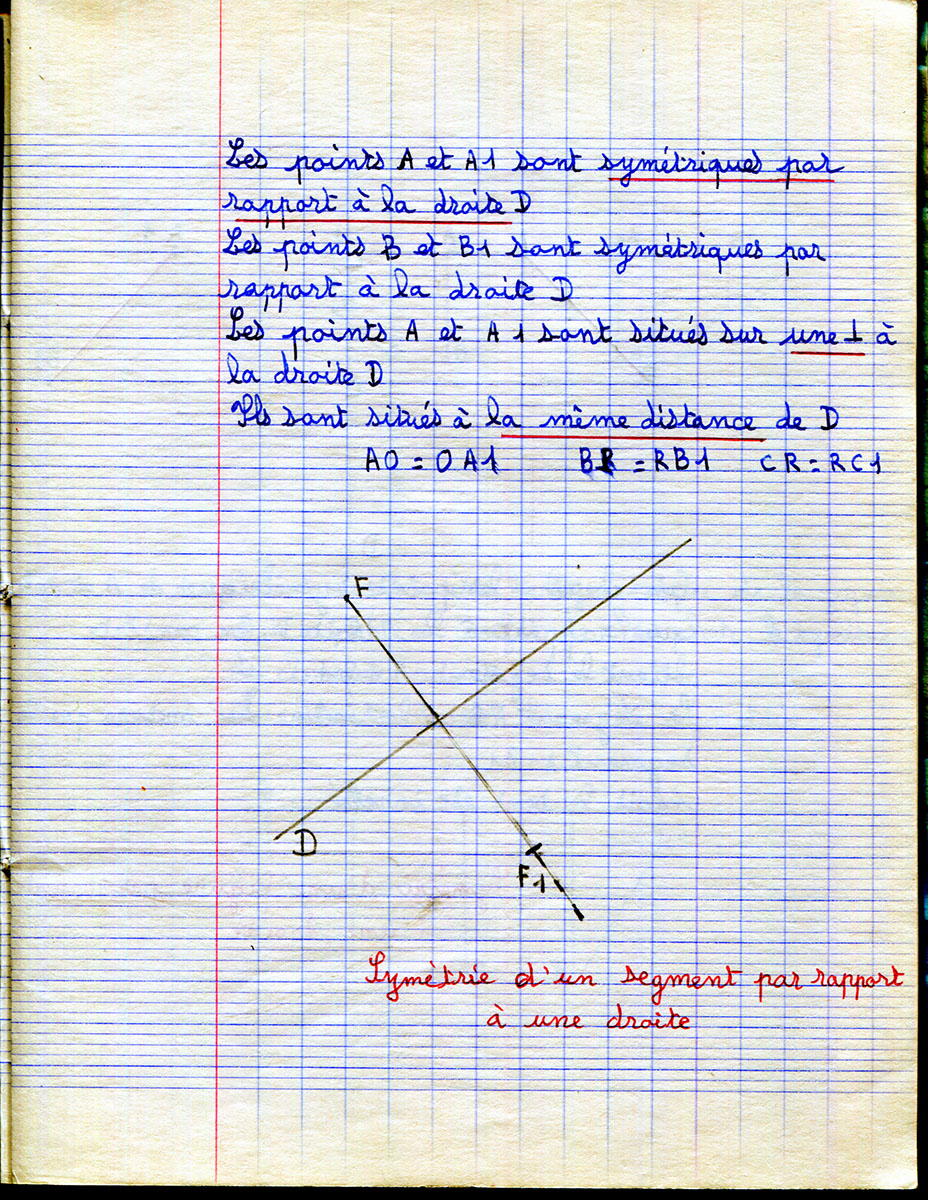 Les points A et A1 sont symétriques par
rapport à la droite D
Les points B et B1 sont symétriques par
rapport à la droite D
Les points A et A1 sont situés sur une ⊥ à
la droite D
Ils sont situés à la même distance de D
AO = OA1 BR = RB1 CR = RC1
F
D
F1
Symétrie d'un segment par rapport
à une droite